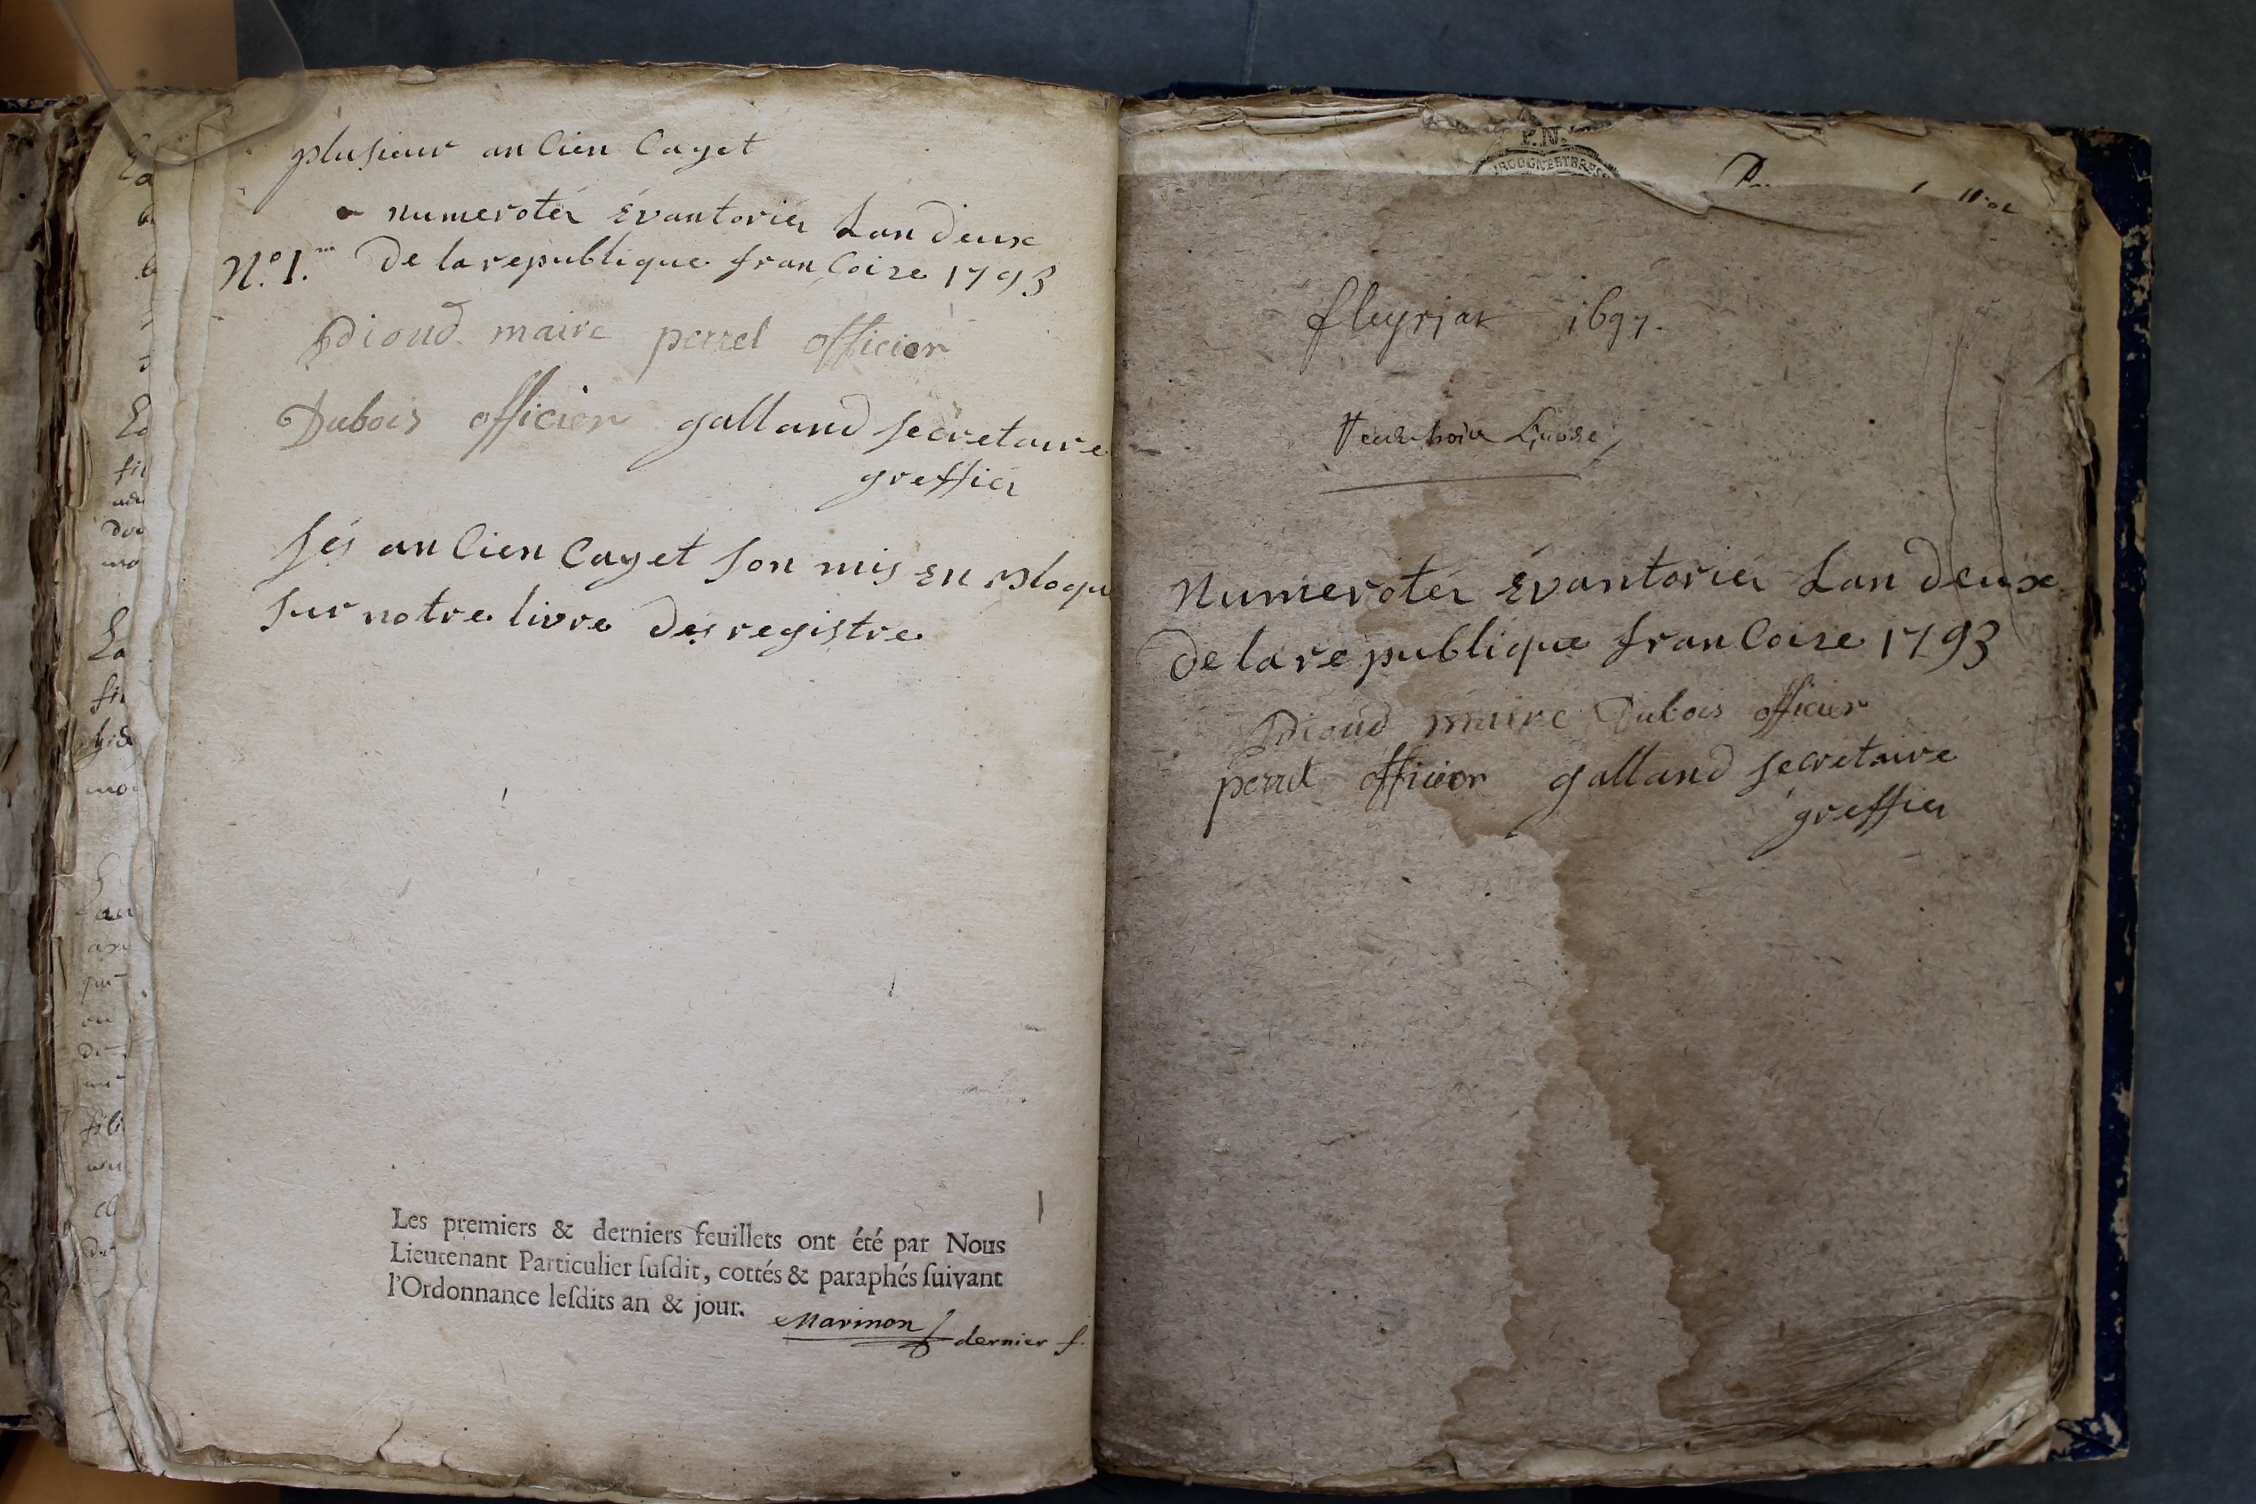 plusieur ancien Cayet
numerotér évantoriér Lan deux
N.º 1.er De la republique francoise 1793
Dioud maire perret officier
Dubois officier galland secretaire
greffiér
sés ancien Cayet son mis en bloque
sur notre livre des registre
Les premiers & derniers feuillets ont été par Nous
Lieutenant Particulier ſuſdit, cottés & paraphés ſuivant
l'Ordonnance leſdits an & jour.
Marinon dernier f.
fleyriat 1697.
numerotér évantoriér Lan deux
de la republique francoise 1793
Dioud maire Dubois officier
perret officier galland secretaire
greffiér